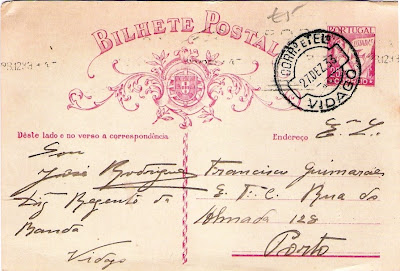 £5
BILHETE POSTAL
PORTUGAL
CORRº E TELº
27DEZ35
VIDAGO
25
Déste lado e no verso a correspondência
Endereço
José Rodrigues
Regente da
Banda
Vidago
Francisco Guimarães
E. T. C. Rua do
Almada 128
Porto